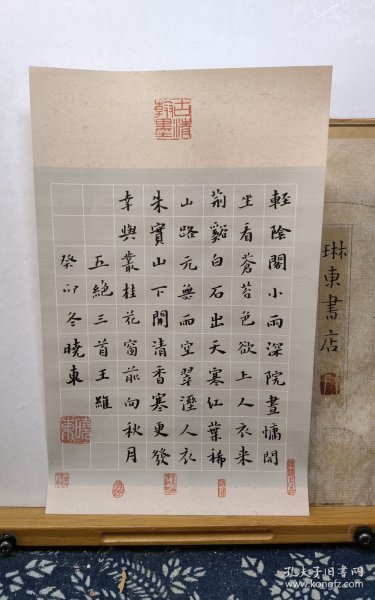 輕陰閣小雨深院晝慵開
坐看蒼苔色欲上人衣來
荊谿白石出天寒紅葉稀
山路元無雨空翠溼人衣
朱實山下開清香寒更發
幸與叢桂花窗前向秋月
五絕三首王維
癸卯冬曉東
曉東
琳東書店
孔夫子旧书网